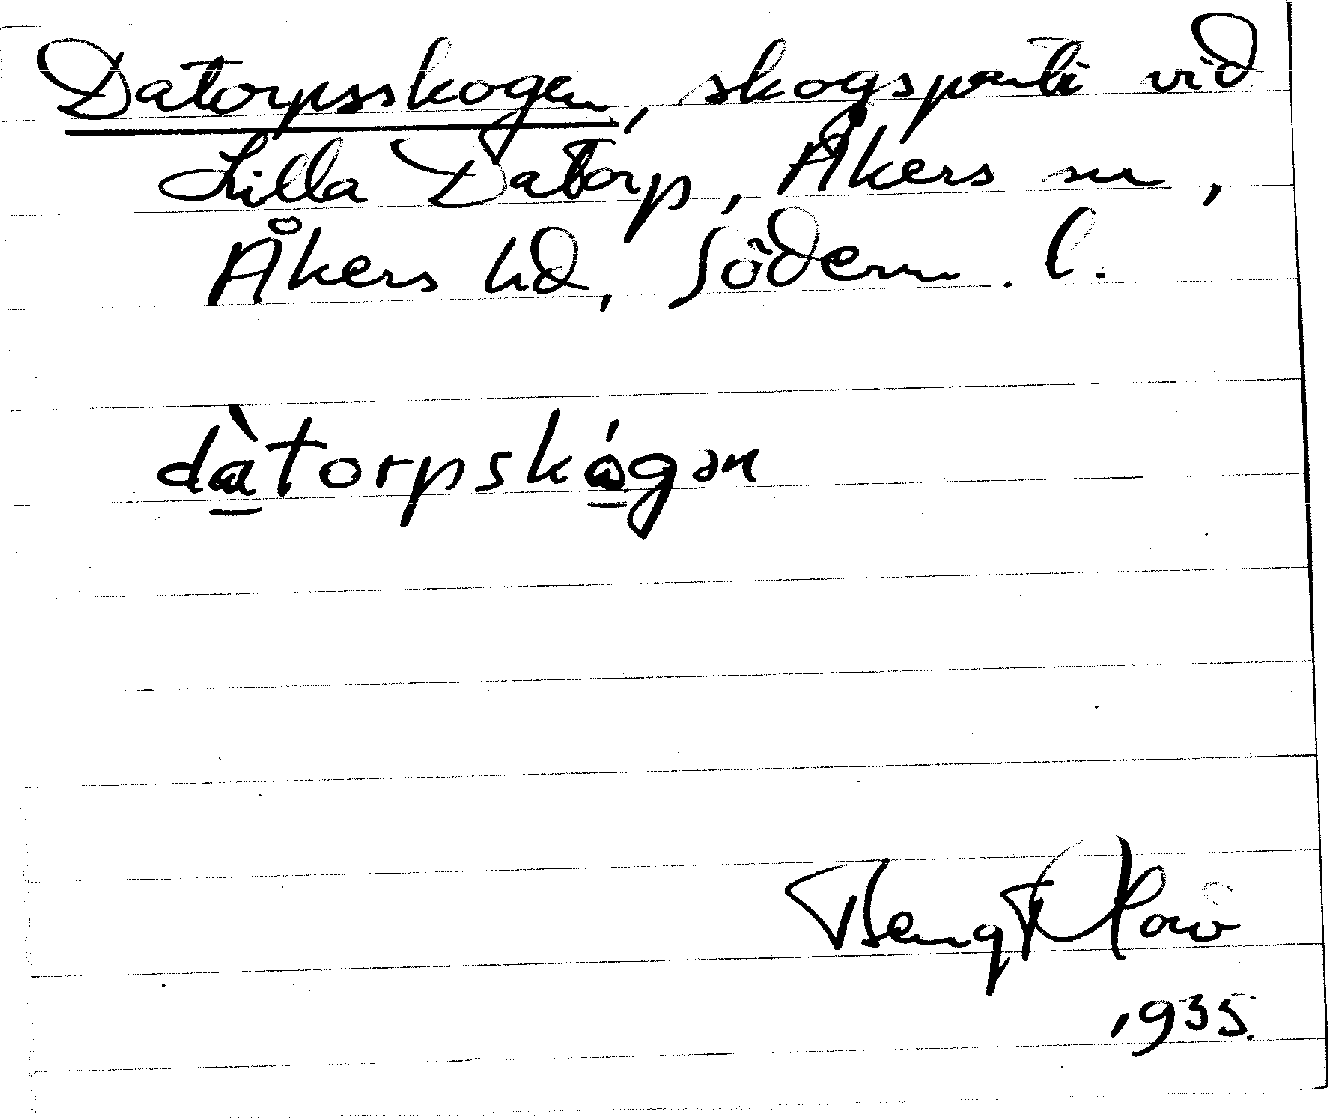 Datorpsskogen, skogsparti vid
Lilla Datorp, Åkers sn,
Åkers hd, Söderm. l.
dàtorpskógən
Bengt
1935.